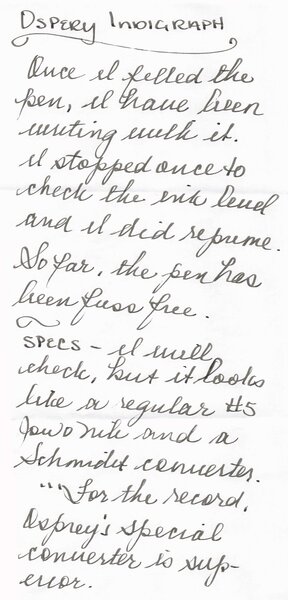 OSPERY INDIGRAPH
Once I filled the
pen, I have been
writing with it.
I stopped once to
check the ink level
and I did reprime.
So far, the pen has
been fuss free.
SPECS – I will
check, but it looks
like a regular #5
Jowo nib and a
Schmidt converter.
""For the record,
Osprey's special
converter is sup-
erior.